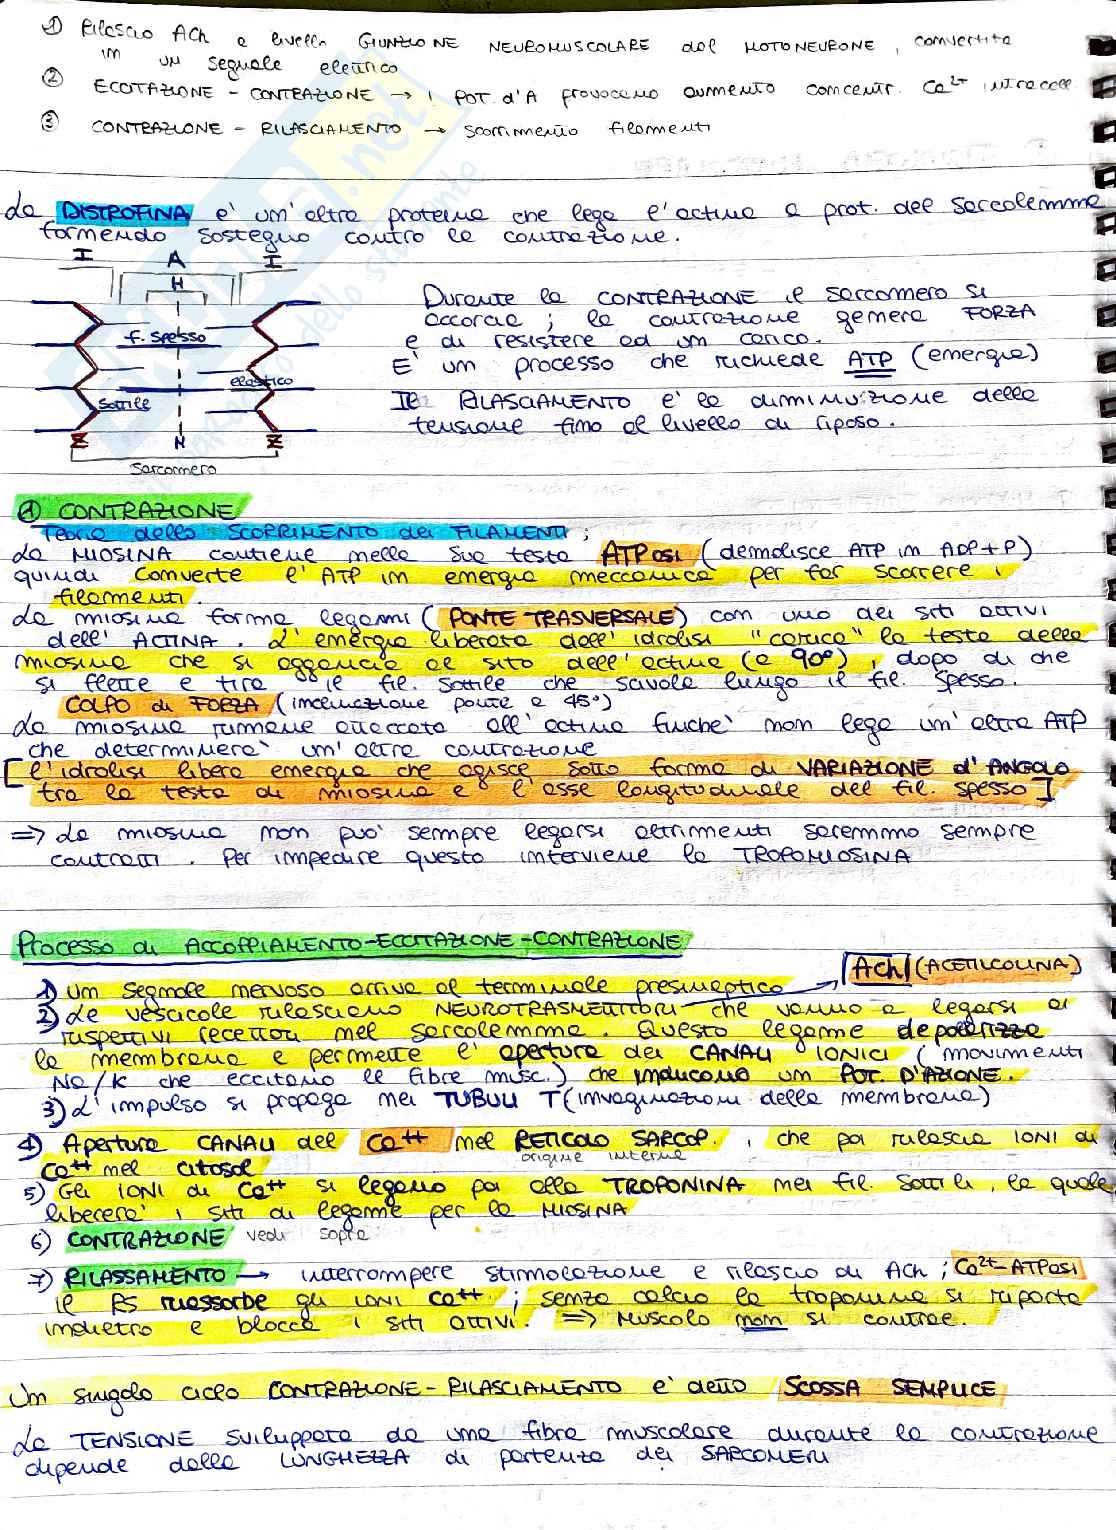 ① Rilascio ACh a livello GIUNZIONE NEUROMUSCOLARE del MOTONEURONE, convertita
in un segnale elettrico
② ECCITAZIONE - CONTRAZIONE → i POT. d'A provocano aumento concentr. Ca²⁺ intracell.
③ CONTRAZIONE - RILASCIAMENTO → scorrimento filamenti
La DISTROFINA è un'altra proteina che lega l'actina a prot. del sarcolemma
formando sostegno contro la contrazione.
I A I
H
f. spesso
elastico
sottile
Z M Z
Sarcomero
Durante la CONTRAZIONE il sarcomero si
accorcia; la contrazione genera FORZA
e di resistere ad un carico.
E' un processo che richiede ATP (energia)
Il RILASCIAMENTO è la diminuizione della
tensione fino al livello di riposo.
① CONTRAZIONE
Teoria dello SCORRIMENTO dei FILAMENTI;
La MIOSINA contiene nella sua testa ATPasi (demolisce ATP in ADP+P)
quindi converte l'ATP in energia meccanica per far scorrere i
filamenti.
La miosina forma legami (PONTE TRASVERSALE) con uno dei siti attivi
dell'ACTINA. L'energia liberata dall'idrolisi "carica" la testa della
miosina che si aggancia al sito dell'actina (a 90°), dopo di che
si flette e tira il fil. sottile che scivola lungo il fil. spesso.
COLPO di FORZA (inclinazione ponte a 45°)
La miosina rimane attaccata all'actina finchè non lega un'altra ATP
che determinerà un'altra contrazione
[l'idrolisi libera energia che agisce sotto forma di VARIAZIONE d'ANGOLO
tra la testa di miosina e l'asse longitudinale del fil. spesso]
⇒ La miosina non può sempre legarsi altrimenti saremmo sempre
contratti. Per impedire questo interviene la TROPOMIOSINA
Processo di ACCOPPIAMENTO-ECCITAZIONE-CONTRAZIONE
1) Un segnale nervoso arriva al terminale presinaptico → ACh (ACETILCOLINA)
2) Le vescicole rilasciano NEUROTRASMETTITORI che vanno a legarsi ai
rispettivi recettori nel sarcolemma. Questo legame depolarizza
la membrana e permette l'apertura dei CANALI IONICI (movimenti
Na/K che eccitano le fibre musc.) che inducono un POT. D'AZIONE.
3) L'impulso si propaga nei TUBULI T (invaginazioni della membrana)
4) Apertura CANALI del Ca⁺⁺ nel RETICOLO SARCOP., che poi rilascia IONI di
origine interna
Ca⁺⁺ nel citosol
5) Gli IONI di Ca⁺⁺ si legano poi alla TROPONINA nei fil. sottili, la quale
libererà i siti di legame per la MIOSINA
6) CONTRAZIONE vedi sopra
7) RILASSAMENTO → interrompere stimolazione e rilascio di ACh; Ca²⁺-ATPasi
il RS riassorbe gli ioni Ca⁺⁺; senza calcio la troponina si riporta
indietro e blocca i siti attivi. ⇒ Muscolo non si contrae.
Un singolo ciclo CONTRAZIONE-RILASCIAMENTO è detto SCOSSA SEMPLICE
La TENSIONE sviluppata da una fibra muscolare durante la contrazione
dipende dalla LUNGHEZZA di partenza dei SARCOMERI